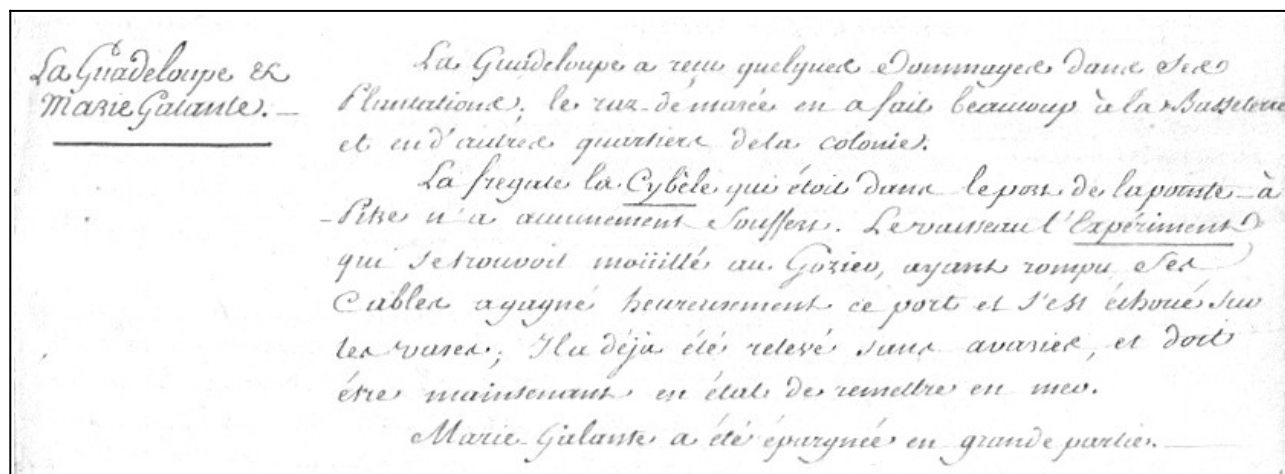 La Guadeloupe et
Marie Galante. _
La Guadeloupe a reçu quelques Dommages dans ses
Plantations; le raz-démarée en a fait beaucoup à la Basseterre
et en d'autres quartiers dela colonie.
La fregate la Cybèle qui étoit dans leport de lapointe_à
_Pitre n'a aucunement souffert. Levaisseau l'Expériment
qui setrouvoit moüillé au Gozier, ayant rompu ses
Cables agagné heureusement ce port et s'est échoué sur
les vases; Il a déja été relevé sans avaries, et doit
être maintenant en état de remettre en mer.
Marie-Galante a été épargnée en grande partie. _